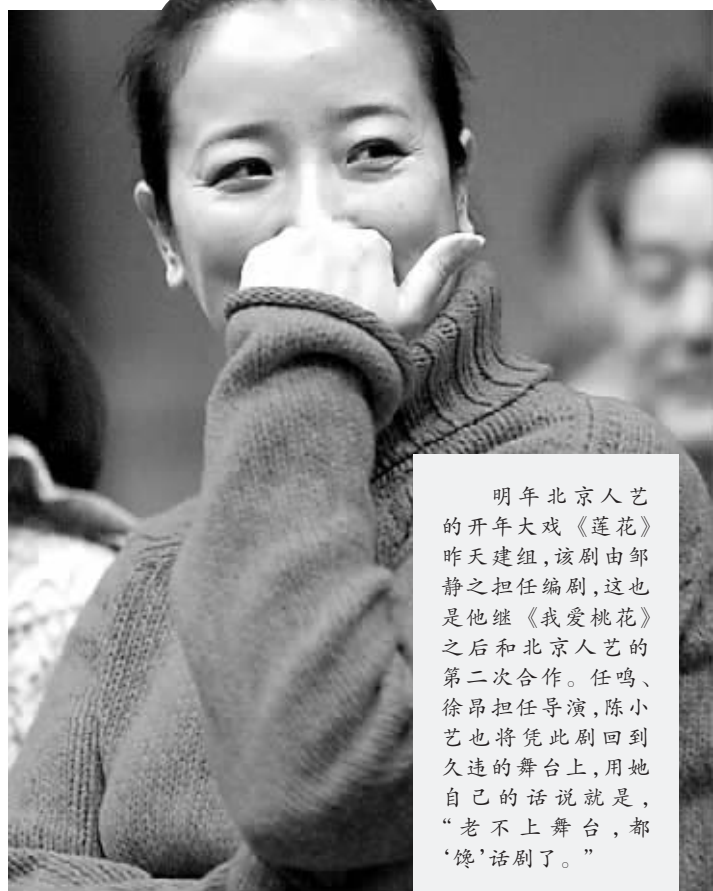 明年北京人艺
的开年大戏《莲花》
昨天建组，该剧由邹
静之担任编剧，这也
是他继《我爱桃花》
之后和北京人艺的
第二次合作。任鸣、
徐昂担任导演，陈小
艺也将凭此剧回到
久违的舞台上，用她
自己的话说就是，
“老不上舞台，都
‘馋’话剧了。”